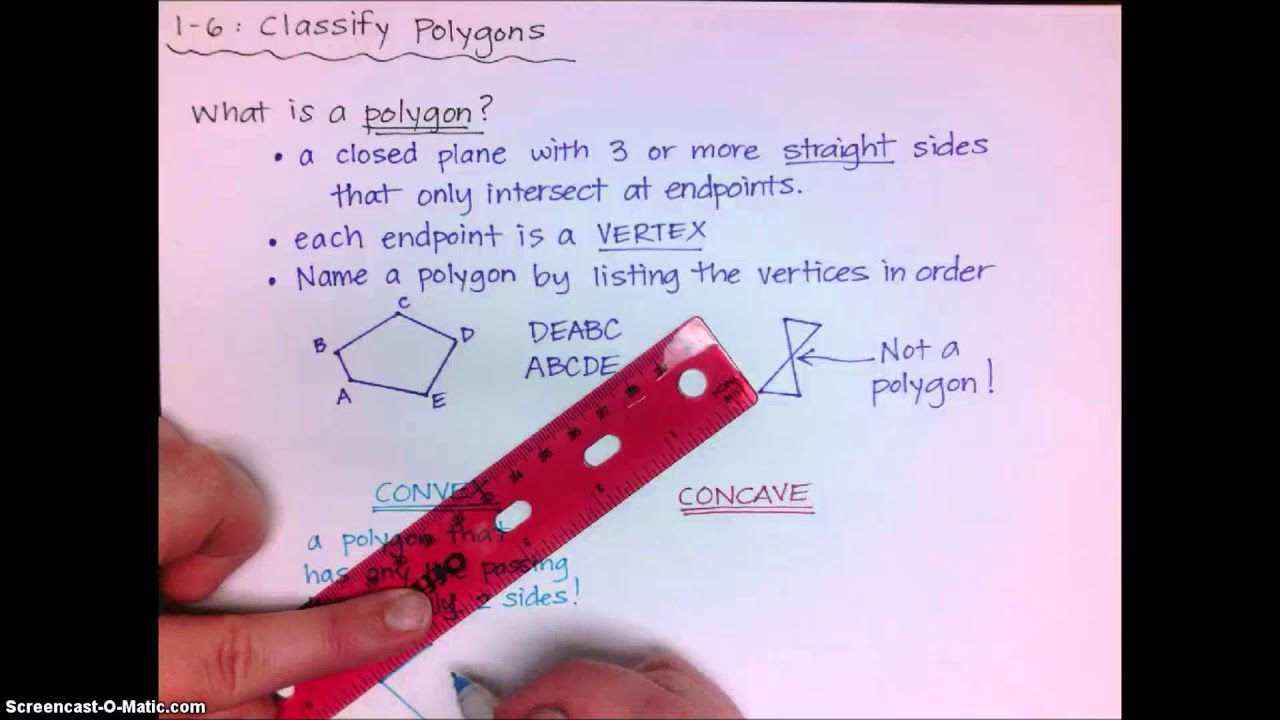 1-6: Classify Polygons
What is a polygon?
• a closed plane with 3 or more straight sides
that only intersect at endpoints.
• each endpoint is a VERTEX
• Name a polygon by listing the vertices in order
C
B
D
A
E
DEABC
ABCDE
Not a
polygon!
CONVEX
CONCAVE
a polygon that
has any line passing
2 sides!
Screencast-O-Matic.com